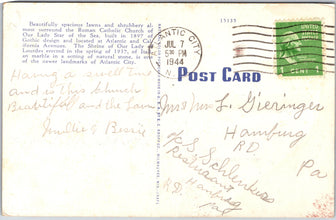 Beautifully spacious lawns and shrubbery al-
most surround the Roman Catholic Church of
Our Lady Star of the Sea, built in 1897 of
Gothic design and located at Atlantic and Cal-
ifornia Avenues. The Shrine of Our Lady of
Lourdes erected in the spring of 1937, of Ital-
ian marble in a setting of natural stone, is one
of the newer landmarks of Atlantic City.
Having a swell time
and is this Church
Beautiful and the Lawn
& Bessie
15135
ATLANTIC CITY
JUL 7
PM
1944
N.J.
POST CARD
1 CENT 1
Mrs Wm L. Dieringer
Hamburg
RD. Pa
c/o S. Schlenker
Restaurant
R.D. Hamburg
Pa